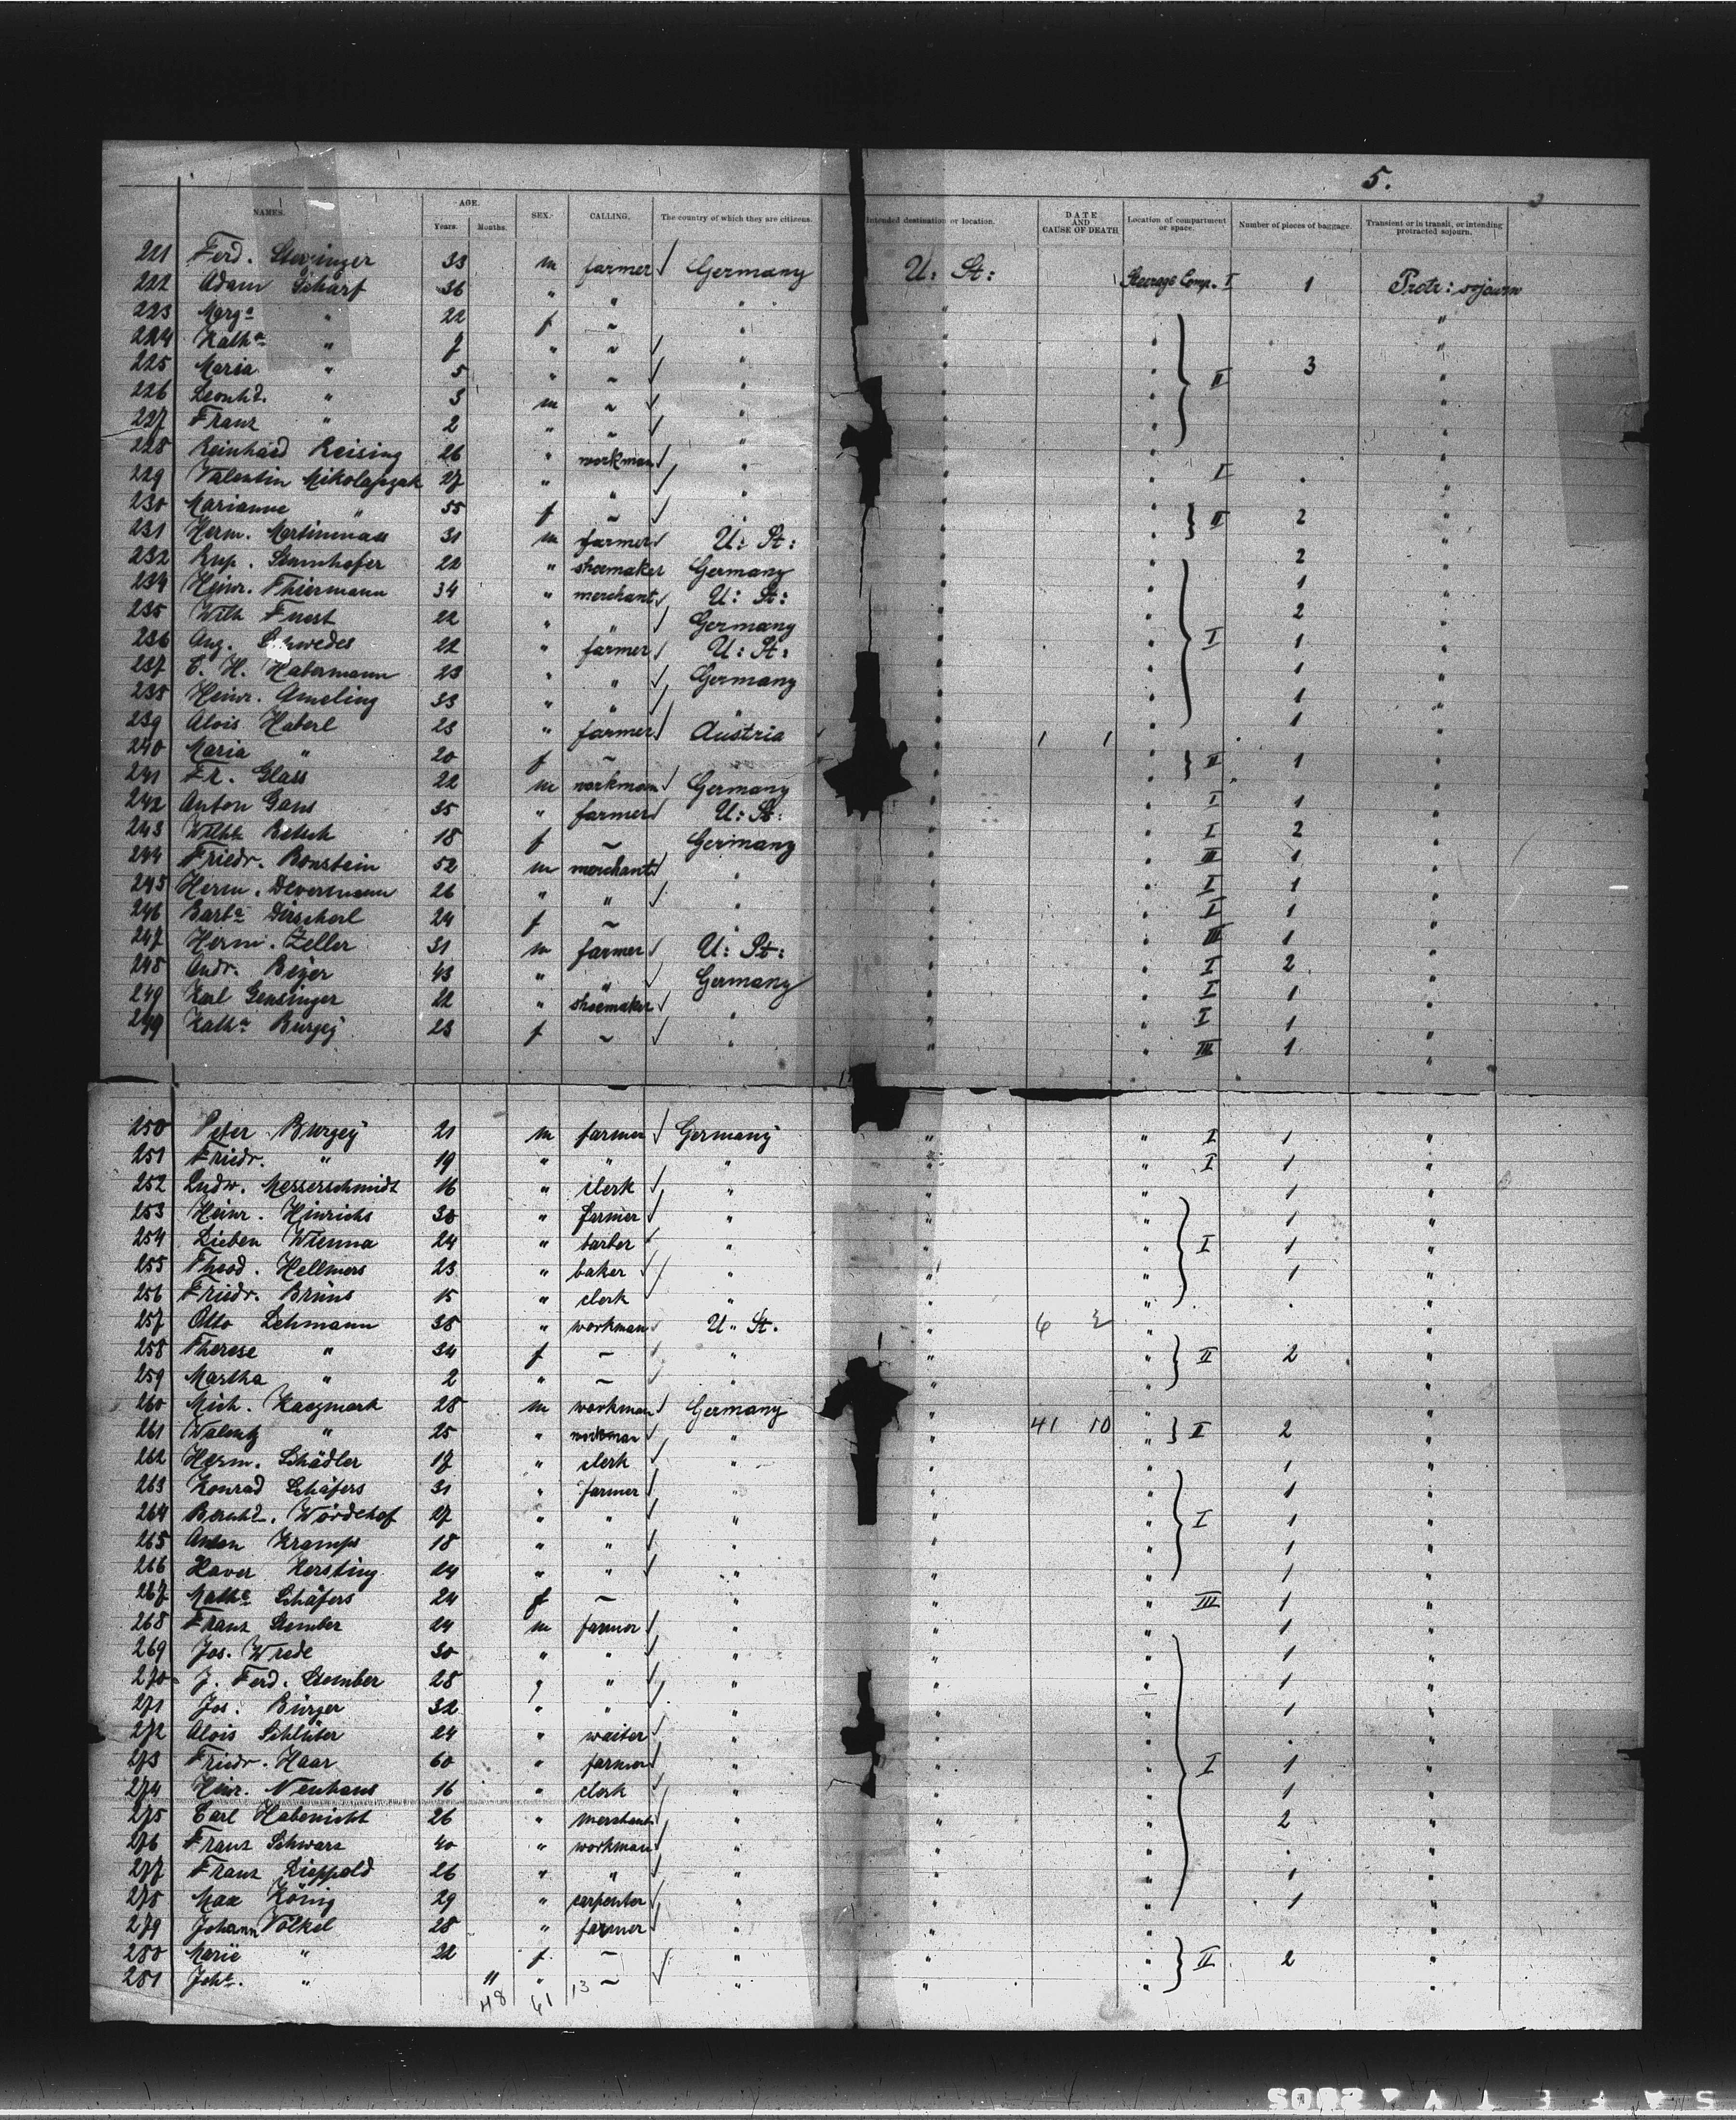 5.
NAMES. AGE. Years. Months. SEX. CALLING. The country of which they are citizens. Intended destination or location. DATE AND CAUSE OF DEATH Location of compartment or space. Number of pieces of baggage. Transient or in transit, or intending protracted sojourn.
221 Ferd. 33 m farmer Germany U: St: Steerage Comp. I 1 Protr: sojourn
222 Adam Scharf 36 " " " " "
223 Marg.a " 22 f ~ " " "
224 Kath.a " 7 " ~ " " "
225 Maria " 5 " ~ " " 3 "
226 Leonhd. " 3 m ~ " " II "
227 Franz " 2 " ~ " " "
228 Reinhard Reising 26 " workman " " I "
229 Valentin Mikolajczak 27 " " " " "
230 Marianne " 55 f ~ " " II 2 "
231 Herm. 31 m farmer U: St: " 2 "
232 Rup. 22 " shoemaker Germany " 1 "
234 Heinr. Thiermann 34 " merchant U: St: " 2 "
235 Wilh Fuest 22 " " Germany " I 1 "
236 Aug. Schwedes 22 " farmer U: St: " 1 "
237 C. H. Habermann 23 " " Germany " 1 "
238 Heinr. Ameling 33 " " " " 1 "
239 Alois Haberl 23 " farmer Austria " 1 1 "
240 Maria " 20 f ~ " II 1 "
241 Fr. Glass 22 m workman Germany " I 1 "
242 Anton Gans 35 " farmer U: St: " I 2 "
243 Wilhe 18 f ~ Germany " III 1 "
244 Friedr. Bonstein 52 m merchant " " I 1 "
245 Herm. Devermann 26 " " " " I 1 "
246 Barba Dirscherl 24 f ~ " " III 1 "
247 Herm. Zeller 31 m farmer U: St: " I 2 "
248 Andr. Beyer 43 " " Germany " I 1 "
249 Karl Gensinger 22 " shoemaker " " I 1 "
249 Katha Burgey 23 f ~ " " III 1 "
250 Peter Burgey 21 m farmer Germany " " I 1 "
251 Friedr. " 19 " " " " " I 1 "
252 Ludw. Messerschmidt 16 " clerk " " " 1 "
253 Heinr. Hinrichs 30 " farmer " " " 1 "
254 Lieben Wienna 24 " barber " " " I 1 "
255 Theod. Hellmers 23 " baker " " " 1 "
256 Friedr. Brüns 15 " clerk " " " "
257 Otto Lehmann 38 " workman U. St. " 6 2 " "
258 Therese " 34 f ~ " " " II 2 "
259 Martha " 2 " ~ " " " "
260 Mich. Kaczmark 28 m workman Germany " " "
261 Walenty " 25 " workman " " 41 10 " II 2 "
262 Herm. Schädler 17 " clerk " " " 1 "
263 Konrad Schäfers 31 " farmer " " " 1 "
264 Bernhd. Wördehof 27 " " " " " I 1 "
265 Anton Kramps 18 " " " " " 1 "
266 Xaver Kersting 24 " " " " " 1 "
267 Matha Schäfers 24 f ~ " " " III 1 "
268 Franz Stember 24 m farmer " " " 1 "
269 Jos. Wrede 30 " " " " " 1 "
270 J. Ferd. Stember 28 " " " " " 1 "
271 Jos. Bürger 32 " " " " " 1 "
272 Alois Schlüter 24 " waiter " " " "
273 Friedr. Haar 60 " farmer " " " I 1 "
274 Heinr. Neuhaus 16 " clerk " " " 1 "
275 Carl Habenicht 26 " merchant " " " 2 "
276 Franz Schwarz 40 " workman " " " "
277 Franz Dieppold 26 " " " " " 1 "
278 Max König 29 " carpenter " " " 1 "
279 Johann Völkel 28 " farmer " " " "
280 Marie " 22 f ~ " " " II 2 "
281 Joha. " 11 " ~ " " " "
48 61 13
SAFETY 2805